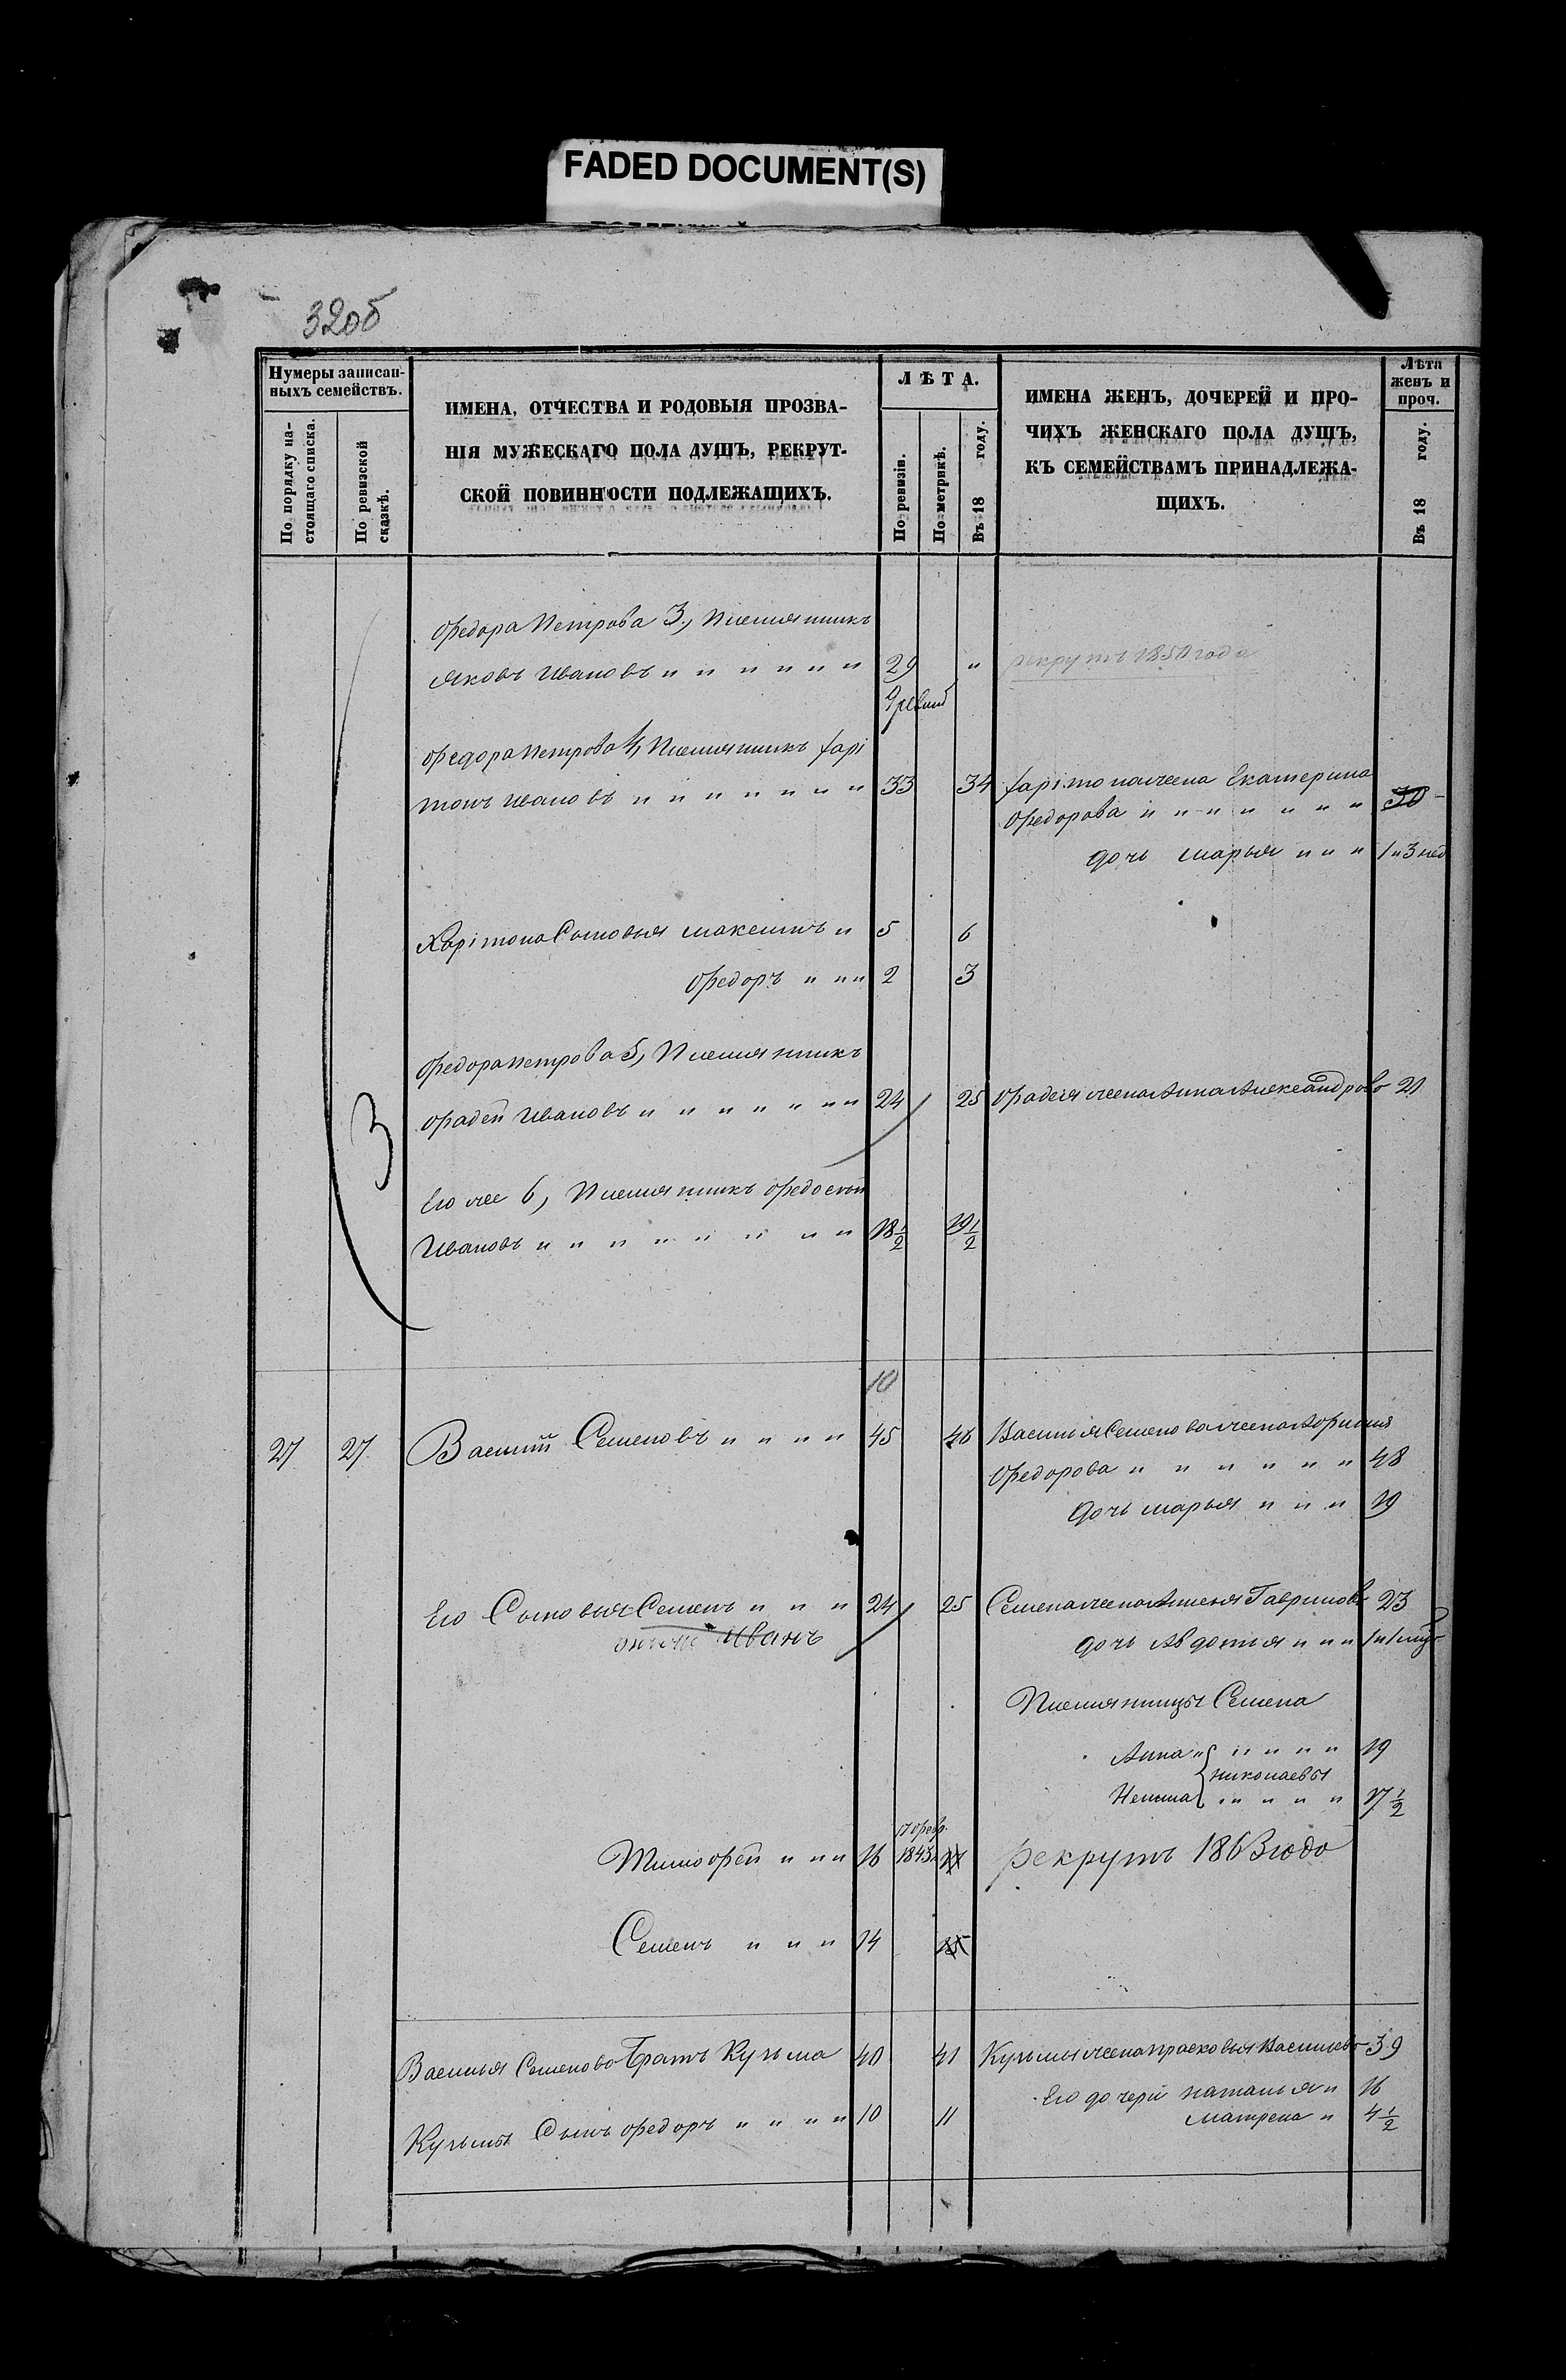 FADED DOCUMENT(S)
320б
Нумеры записан-
ныхъ семействъ.
По порядку на-
стоящаго списка.
По ревизской
сказкѣ.
ИМЕНА, ОТЧЕСТВА И РОДОВЫЯ ПРОЗВА-
НІЯ МУЖЕСКАГО ПОЛА ДУШЪ, РЕКРУТ-
СКОЙ ПОВИННОСТИ ПОДЛЕЖАЩИХЪ.
ЛѢТА.
По ревизіи.
По метрикѣ.
Въ 18 году.
ИМЕНА ЖЕНЪ, ДОЧЕРЕЙ И ПРО-
ЧИХЪ ЖЕНСКАГО ПОЛА ДУШЪ,
КЪ СЕМЕЙСТВАМЪ ПРИНАДЛЕЖА-
ЩИХЪ.
Лѣта
женъ и
проч.
Въ 18 году.
Федора Петрова 3, Племянникъ
Яковъ Ивановъ " " " " " " 29 " рекрутъ 1850 года
9 ревиз
Федора Петрова 4, Племянникъ Харі
тонъ Ивановъ " " " " " " " 33 34 Харітона жена Екатерина
Федорова " " " " " " " 30
дочь Марья " " " 1 и 3 нед
Харітона Сыновья Максимъ " 5 6
Федоръ " " " 2 3
Федора Петрова 5, Племянникъ
3
Фадей Ивановъ " " " " " " " 24 25 Фадея жена Анна Александрово 21
Его же 6, Племянникъ Федосей
Ивановъ " " " " " " " " 18 1/2 19 1/2
10
27 27 Василій Семеновъ " " " " 45 46 Василья Семенова жена Афимия
Федорова " " " " " " 48
Дочь Марья " " " 19
Его Сыновья Семенъ " " " 24 25 Семена жена Аксенья Гаврилова 23
Иванъ
дочь Авдотья " " " 1 и 1 мцъ
Племянницы Семена
Анна " " " " " 19
Николаевы
" " " " " 17 1/2
17 февр.
Тимофей " " " 16 1843 17 рекрутъ 1863 годо
Семенъ " " " 14 15
Василья Семенова Братъ Кузьма 40 41 Кузьмы жена Прасковья Васильево 39
Его дочери Наталья " 16
Матрена " 4 1/2
Кузьмы Сынъ Федоръ " " " " 10 11